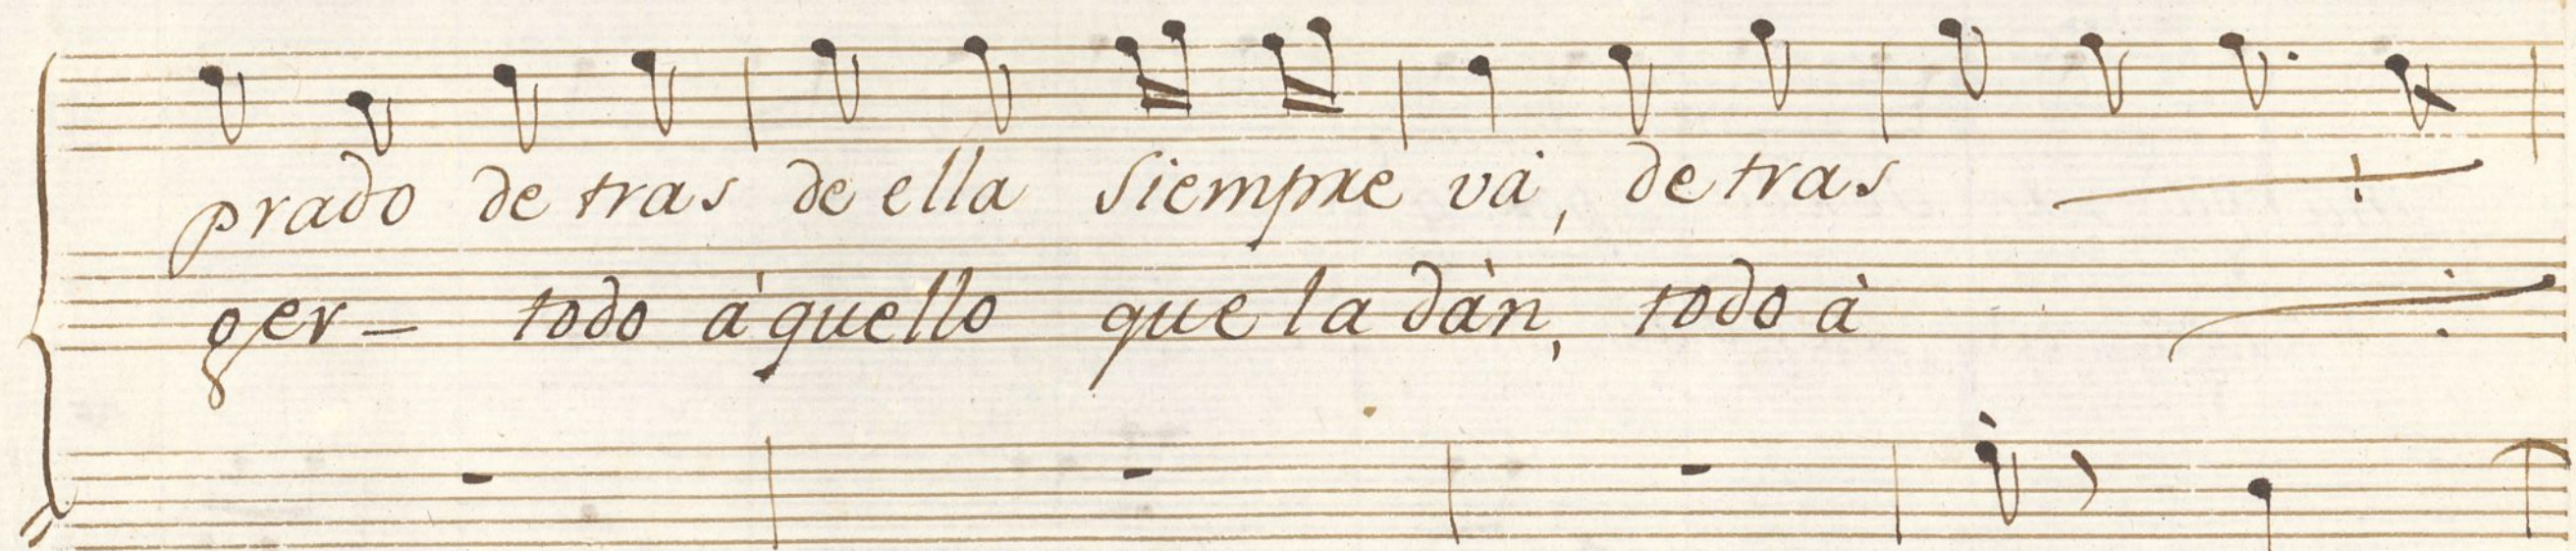 prado de tras de ella siempre vá, de tras
ger- todo á quello que la dàn, todo à